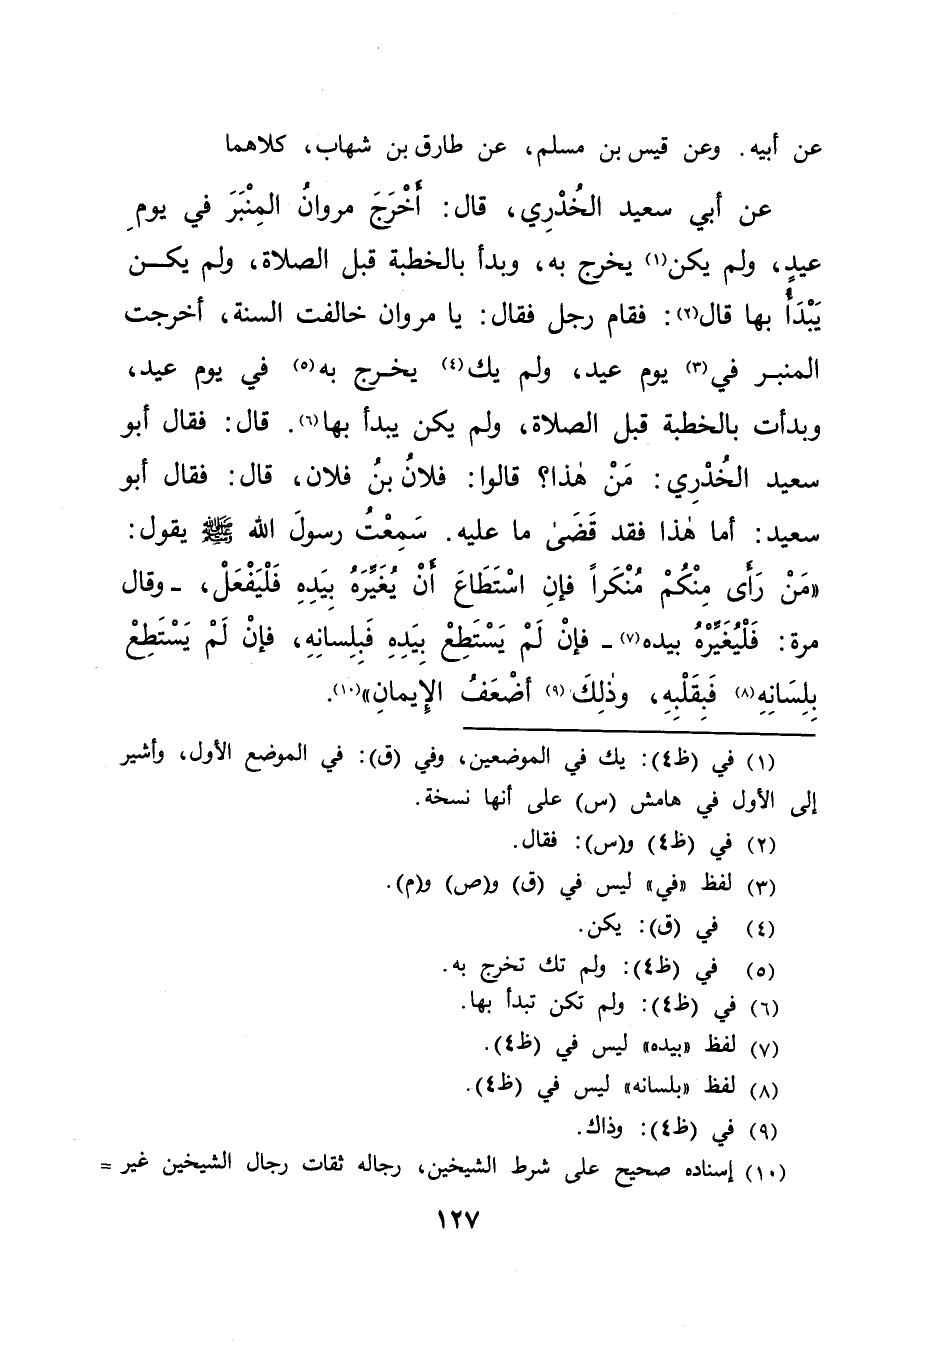 عن أبيه. وعن قيس بن مسلم، عن طارق بن شهاب، كلاهما
عن أبي سعيد الخُدْرِي، قال: أَخْرَجَ مروانُ المِنْبَرَ في يومِ
عيدٍ، ولم يكن(١) يخرج به، وبدأ بالخطبة قبل الصلاة، ولم يكـن
يَبْدَأُ بها قال(٢): فقام رجل فقال: يا مروان خالفت السنة، أخرجت
المنبـر في(٣) يوم عيد، ولم يك(٤) يخـرج به(٥) في يوم عيد،
وبدأت بالخطبة قبل الصلاة، ولم يكن يبدأ بها(٦). قال: فقال أبو
سعيد الخُدْرِي: مَنْ هٰذا؟ قالوا: فلانُ بنُ فلان، قال: فقال أبو
سعيد: أما هٰذا فقد قَضَىٰ ما عليه. سَمِعْتُ رسولَ الله ﷺ يقول:
«مَنْ رَأَى مِنْكُمْ مُنْكَراً فإنِ اسْتَطَاعَ أَنْ يُغَيِّرَهُ بِيَدِهِ فَلْيَفْعَلْ، ـ وقال
مرة: فَلْيُغَيِّرْهُ بيده(٧) ـ فإنْ لَمْ يَسْتَطِعْ بِيَدِهِ فَبِلسانِهِ، فإنْ لَمْ يَسْتَطِعْ
بِلِسَانِهِ(٨) فَبِقَلْبِهِ، وذٰلِكَ(٩) أضْعَفُ الإِيمانِ»(١٠).
(١) في (ظ٤): يك في الموضعين، وفي (ق): في الموضع الأول، وأشير
إلى الأول في هامش (س) على أنها نسخة.
(٢) في (ظ٤) و(س): فقال.
(٣) لفظ «في» ليس في (ق) و(ص) و(م).
(٤) في (ق): يكن.
(٥) في (ظ٤): ولم تك تخرج به.
(٦) في (ظ٤): ولم تكن تبدأ بها.
(٧) لفظ «بيده» ليس في (ظ٤).
(٨) لفظ «بلسانه» ليس في (ظ٤).
(٩) في (ظ٤): وذاك.
(١٠) إسناده صحيح على شرط الشيخين، رجاله ثقات رجال الشيخين غير =
١٢٧